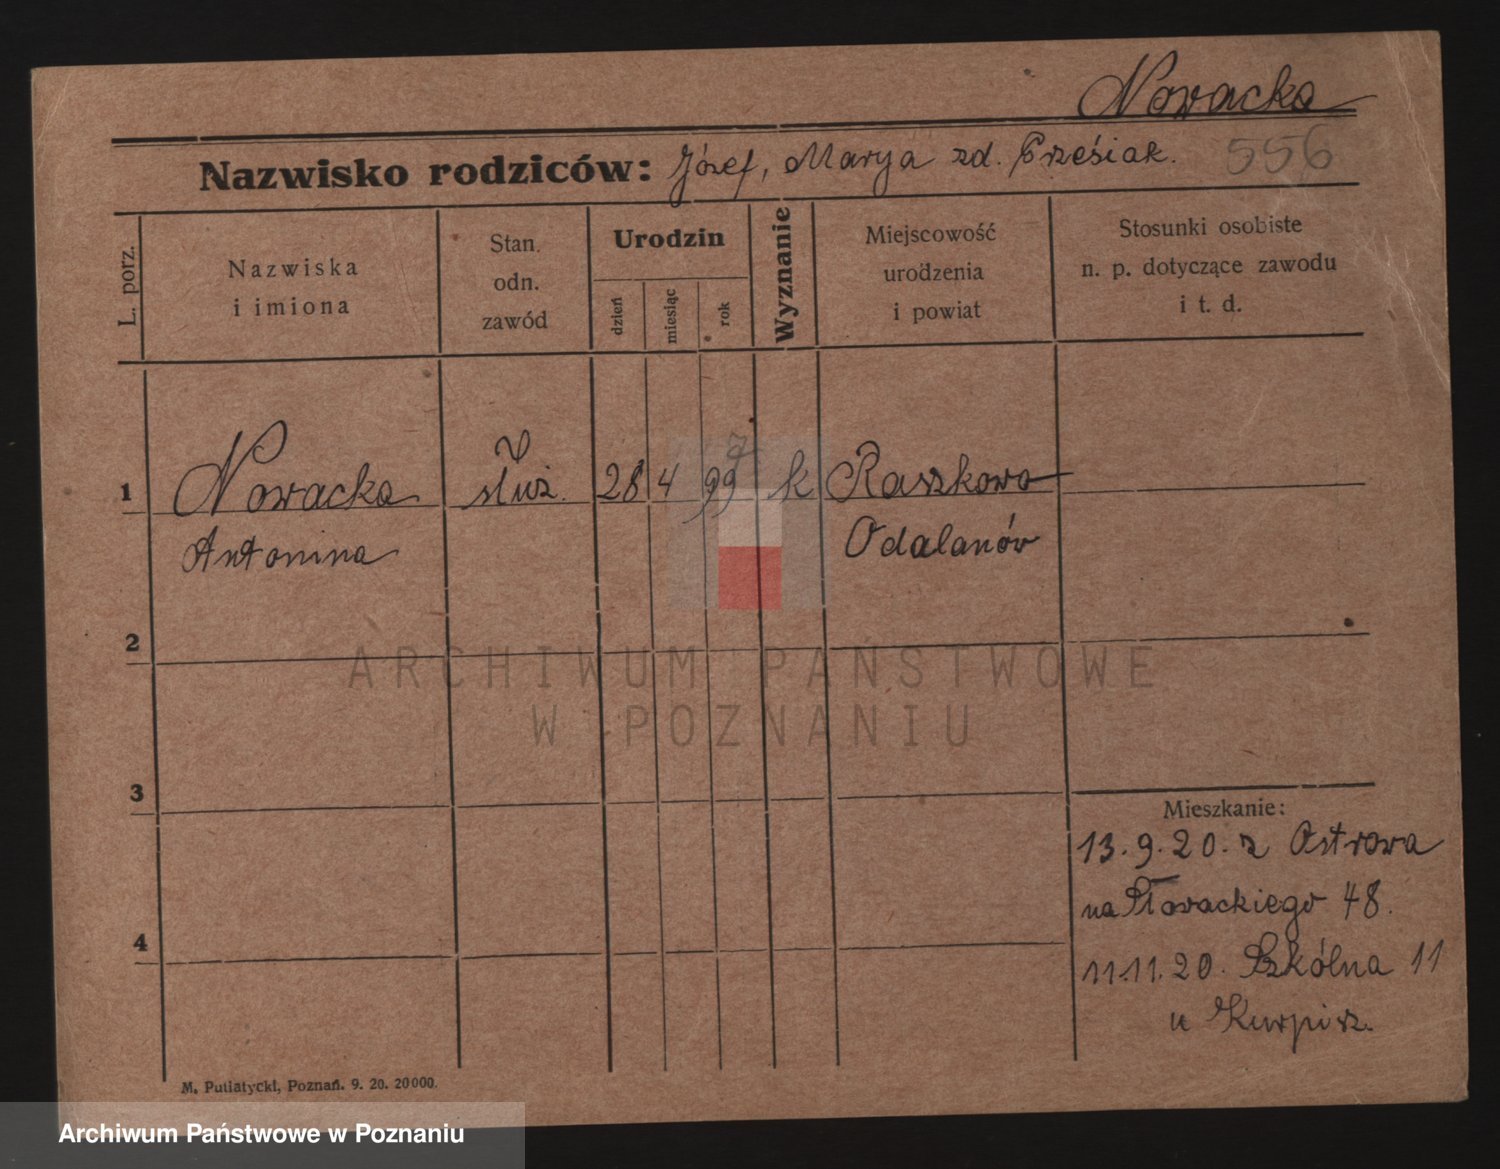 Nowacka
Nazwisko rodziców: Józef, Marya zd. Prześiak.
556
L. porz.
Nazwiska
i imiona
Stan.
odn.
zawód
Urodzin
dzień
miesiąc
rok
Wyznanie
Miejscowość
urodzenia
i powiat
Stosunki osobiste
n. p. dotyczące zawodu
i t. d.
1 Nowacka służ. 28 4 99 k Raszkowo
Antonina Odalanów
2
3
4
Mieszkanie:
13.9.20. z Ostrowa
na Słowackiego 48.
11.11.20. Szkólna 11
u Kurpisz.
M. Putiatycki, Poznań. 9. 20. 20000.
ARCHIWUM PAŃSTWOWE
W POZNANIU
Archiwum Państwowe w Poznaniu